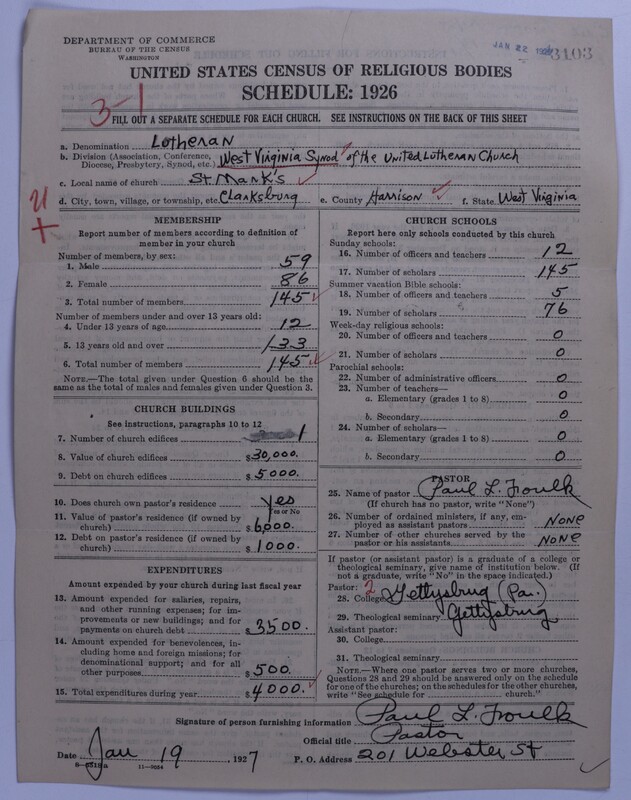 DEPARTMENT OF COMMERCE
BUREAU OF THE CENSUS
WASHINGTON
JAN 22 1927
3103
UNITED STATES CENSUS OF RELIGIOUS BODIES
SCHEDULE: 1926
3-1
FILL OUT A SEPARATE SCHEDULE FOR EACH CHURCH. SEE INSTRUCTIONS ON THE BACK OF THIS SHEET
a. Denomination Lutheran
b. Division (Association, Conference, Diocese, Presbytery, Synod, etc.) West Virginia Synod of the United Lutheran Church
c. Local name of church St Mark's
d. City, town, village, or township, etc. Clarksburg e. County Harrison f. State West Virginia
MEMBERSHIP
Report number of members according to definition of
member in your church
Number of members, by sex:
1. Male 59
2. Female 86
3. Total number of members 145
Number of members under and over 13 years old:
4. Under 13 years of age 12
5. 13 years old and over 133
6. Total number of members 145
NOTE.—The total given under Question 6 should be
the same as the total of males and females given under Question 3.
CHURCH BUILDINGS
See instructions, paragraphs 10 to 12
7. Number of church edifices 1
8. Value of church edifices $30,000.
9. Debt on church edifices $5000.
10. Does church own pastor's residence yes
Yes or No
11. Value of pastor's residence (if owned by
church) $6,000.
12. Debt on pastor's residence (if owned by
church) $1000.
EXPENDITURES
Amount expended by your church during last fiscal year
13. Amount expended for salaries, repairs,
and other running expenses; for im-
provements or new buildings; and for
payments on church debt $3500.
14. Amount expended for benevolences, in-
cluding home and foreign missions; for
denominational support; and for all
other purposes $500.
15. Total expenditures during year $4000.
CHURCH SCHOOLS
Report here only schools conducted by this church
Sunday schools:
16. Number of officers and teachers 12
17. Number of scholars 145
Summer vacation Bible schools:
18. Number of officers and teachers 5
19. Number of scholars 76
Week-day religious schools:
20. Number of officers and teachers 0
21. Number of scholars 0
Parochial schools:
22. Number of administrative officers 0
23. Number of teachers—
a. Elementary (grades 1 to 8) 0
b. Secondary 0
24. Number of scholars—
a. Elementary (grades 1 to 8) 0
b. Secondary 0
PASTOR
25. Name of pastor Paul L. Froulk
(If church has no pastor, write "None")
26. Number of ordained ministers, if any, em-
ployed as assistant pastors NONE
27. Number of other churches served by the
pastor or his assistants NONE
If pastor (or assistant pastor) is a graduate of a college or
theological seminary, give name of institution below. (If
not a graduate, write "No" in the space indicated.)
Pastor: 2
28. College Gettysbrug (Pa.)
29. Theological seminary Gettysburg
Assistant pastor:
30. College
31. Theological seminary
NOTE.—Where one pastor serves two or more churches,
Questions 28 and 29 should be answered only on the schedule
for one of the churches; on the schedules for the other churches,
write "See schedule for church."
Signature of person furnishing information Paul L. Froulk
Official title Pastor
Date Jan 19, 1927 P. O. Address 201 Webster St
11—9054